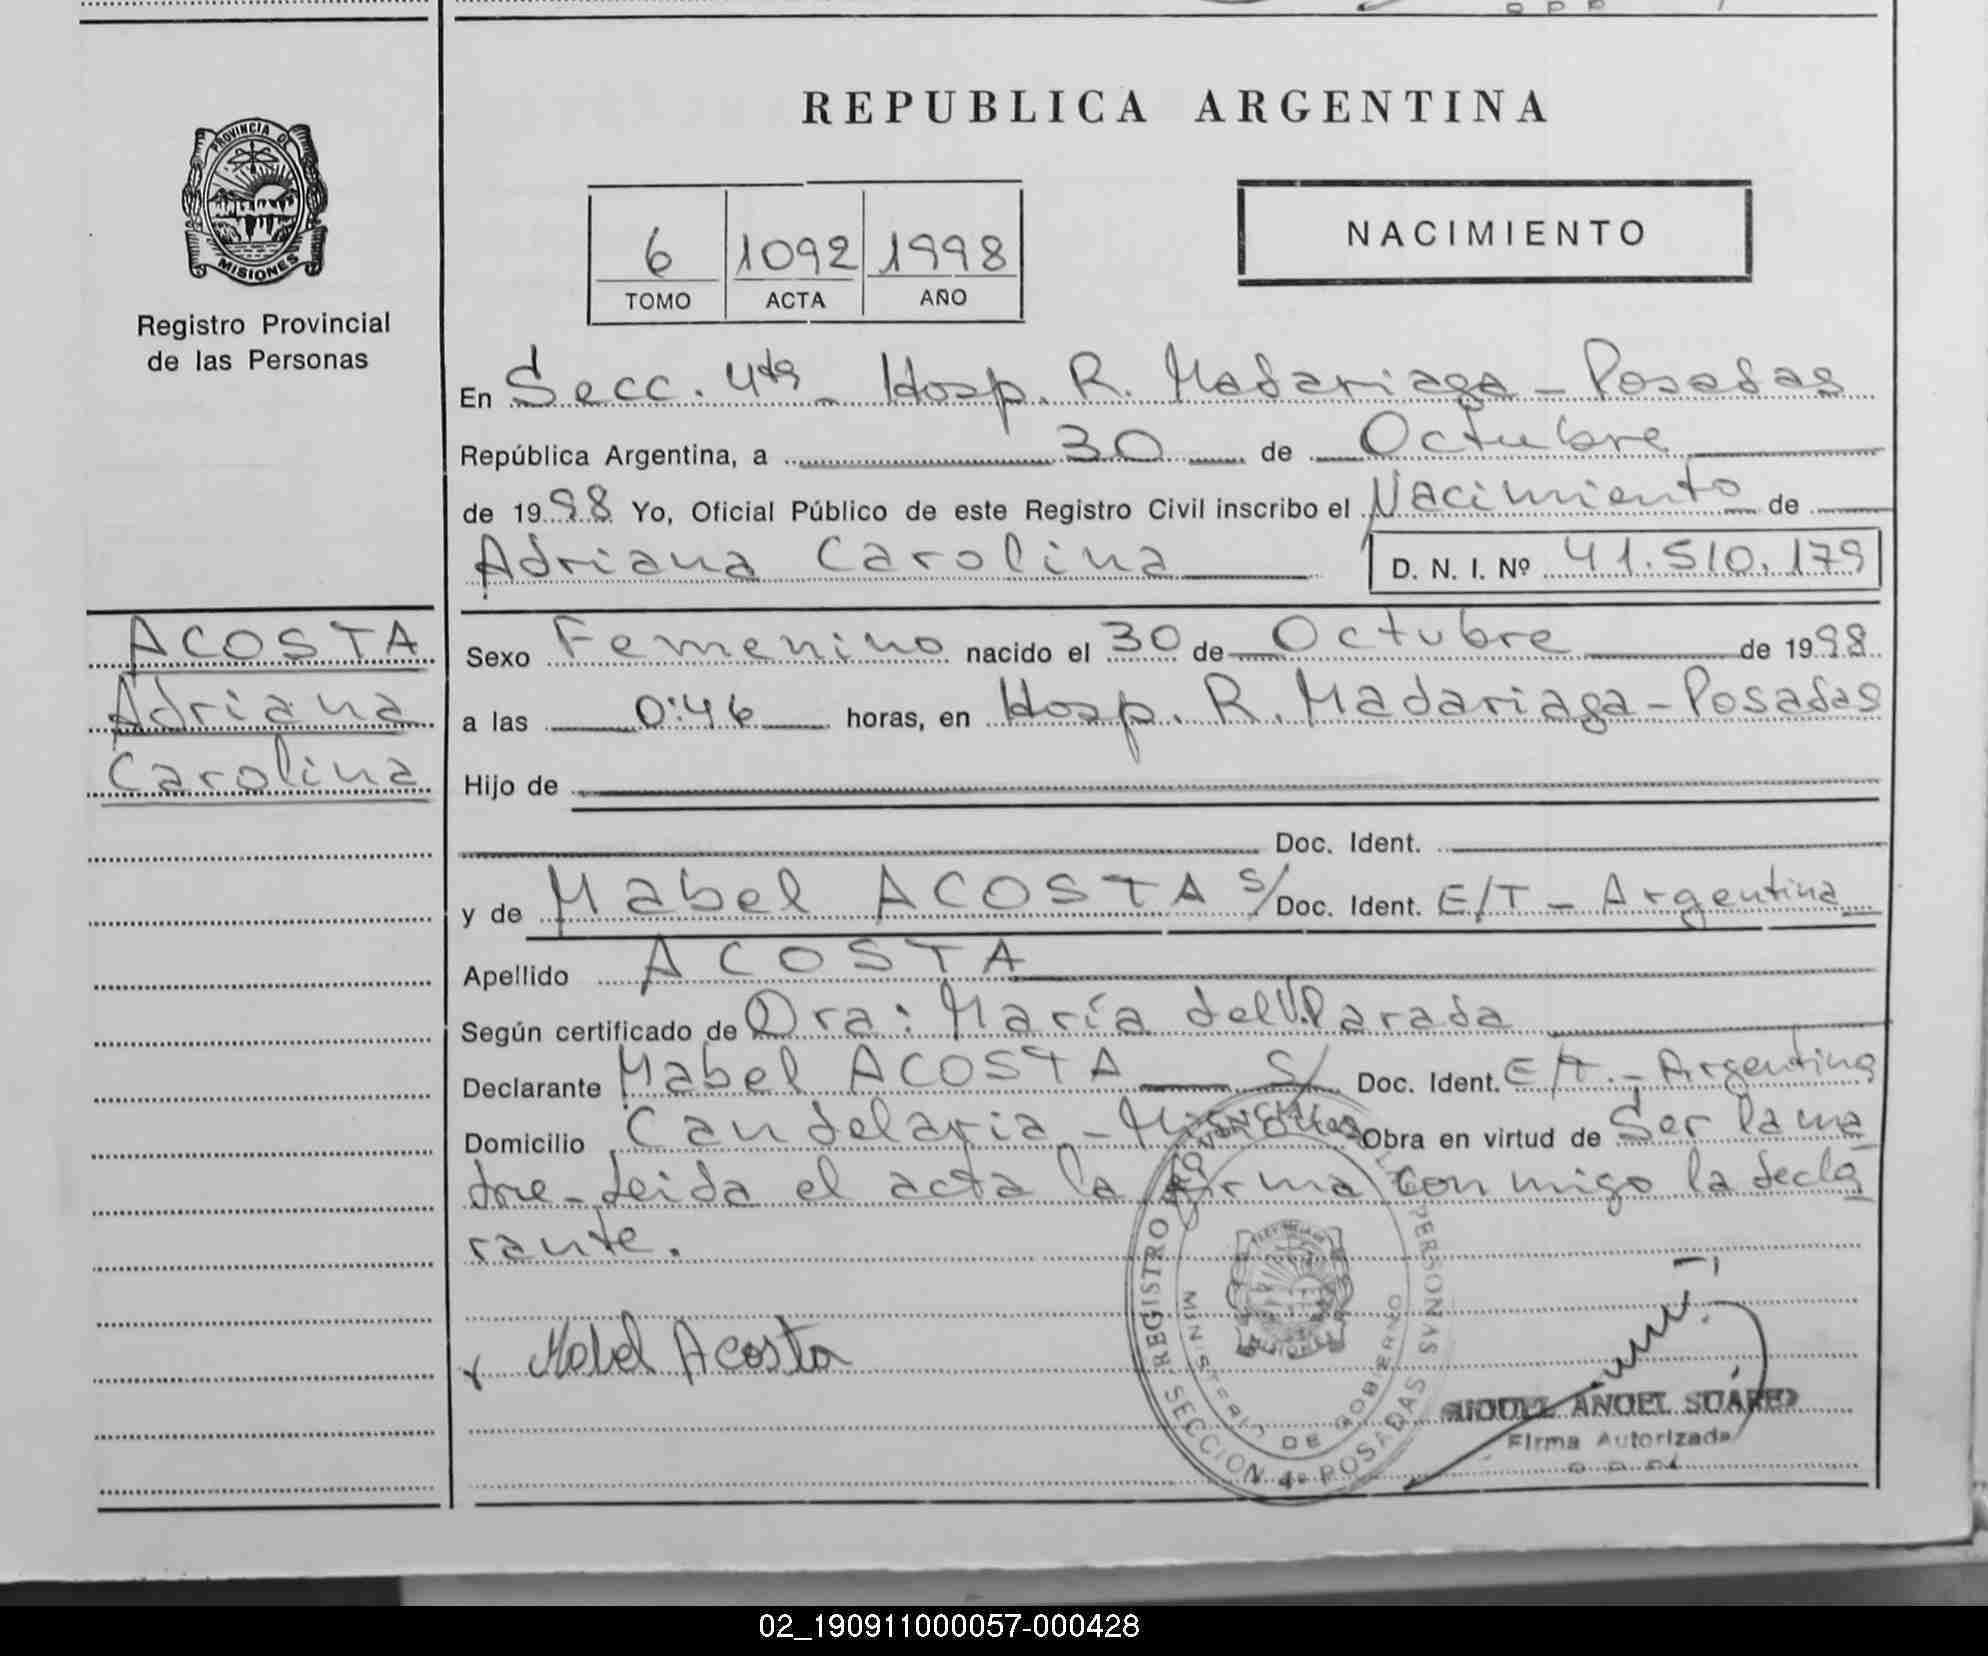 PROVINCIA DE
MISIONES
Registro Provincial
de las Personas
ACOSTA
Adriana
Carolina
REPUBLICA ARGENTINA
6 1092 1998
TOMO ACTA AÑO
NACIMIENTO
En Secc. 4ta - Hosp. R. Madariaga - Posadas
República Argentina, a 30 de Octubre
de 1998 Yo, Oficial Público de este Registro Civil inscribo el Nacimiento de
Adriana Carolina D. N. I. Nº 41.510.179
Sexo Femenino nacido el 30 de Octubre de 1998
a las 0:46 horas, en Hosp. R. Madariaga - Posadas
Hijo de
Doc. Ident.
y de Mabel ACOSTA s/ Doc. Ident. E/T - Argentina
Apellido ACOSTA
Según certificado de Dra: María del V. Parada
Declarante Mabel ACOSTA S/ Doc. Ident. E/T. - Argentina
Domicilio Candelaria - Misiones Obra en virtud de Ser la ma
dre - Leida el acta la firma conmigo la decla
rante.
x Mabel Acosta
REGISTRO PROVINCIAL DE LAS PERSONAS
MINISTERIO DE GOBIERNO
SECCION 4ª POSADAS
ANGEL SUAREZ
Firma Autorizada
02_190911000057-000428